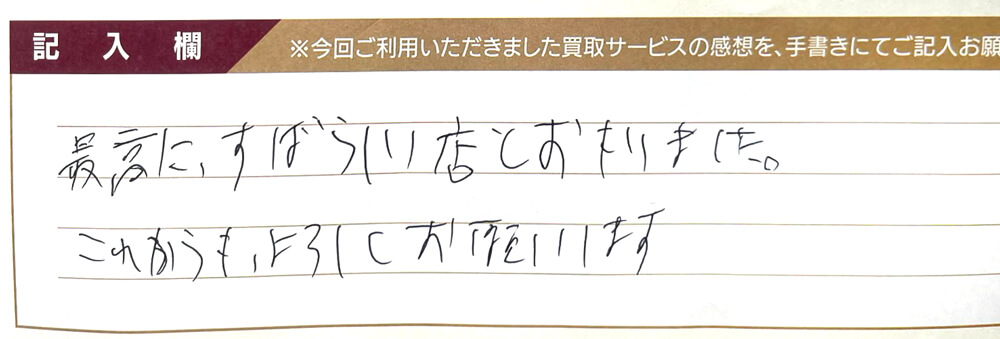 記入欄
※今回ご利用いただきました買取サービスの感想を、手書きにてご記入お願
最高に、すばらしい店とおもいました。
これからも、よろしくお願いします